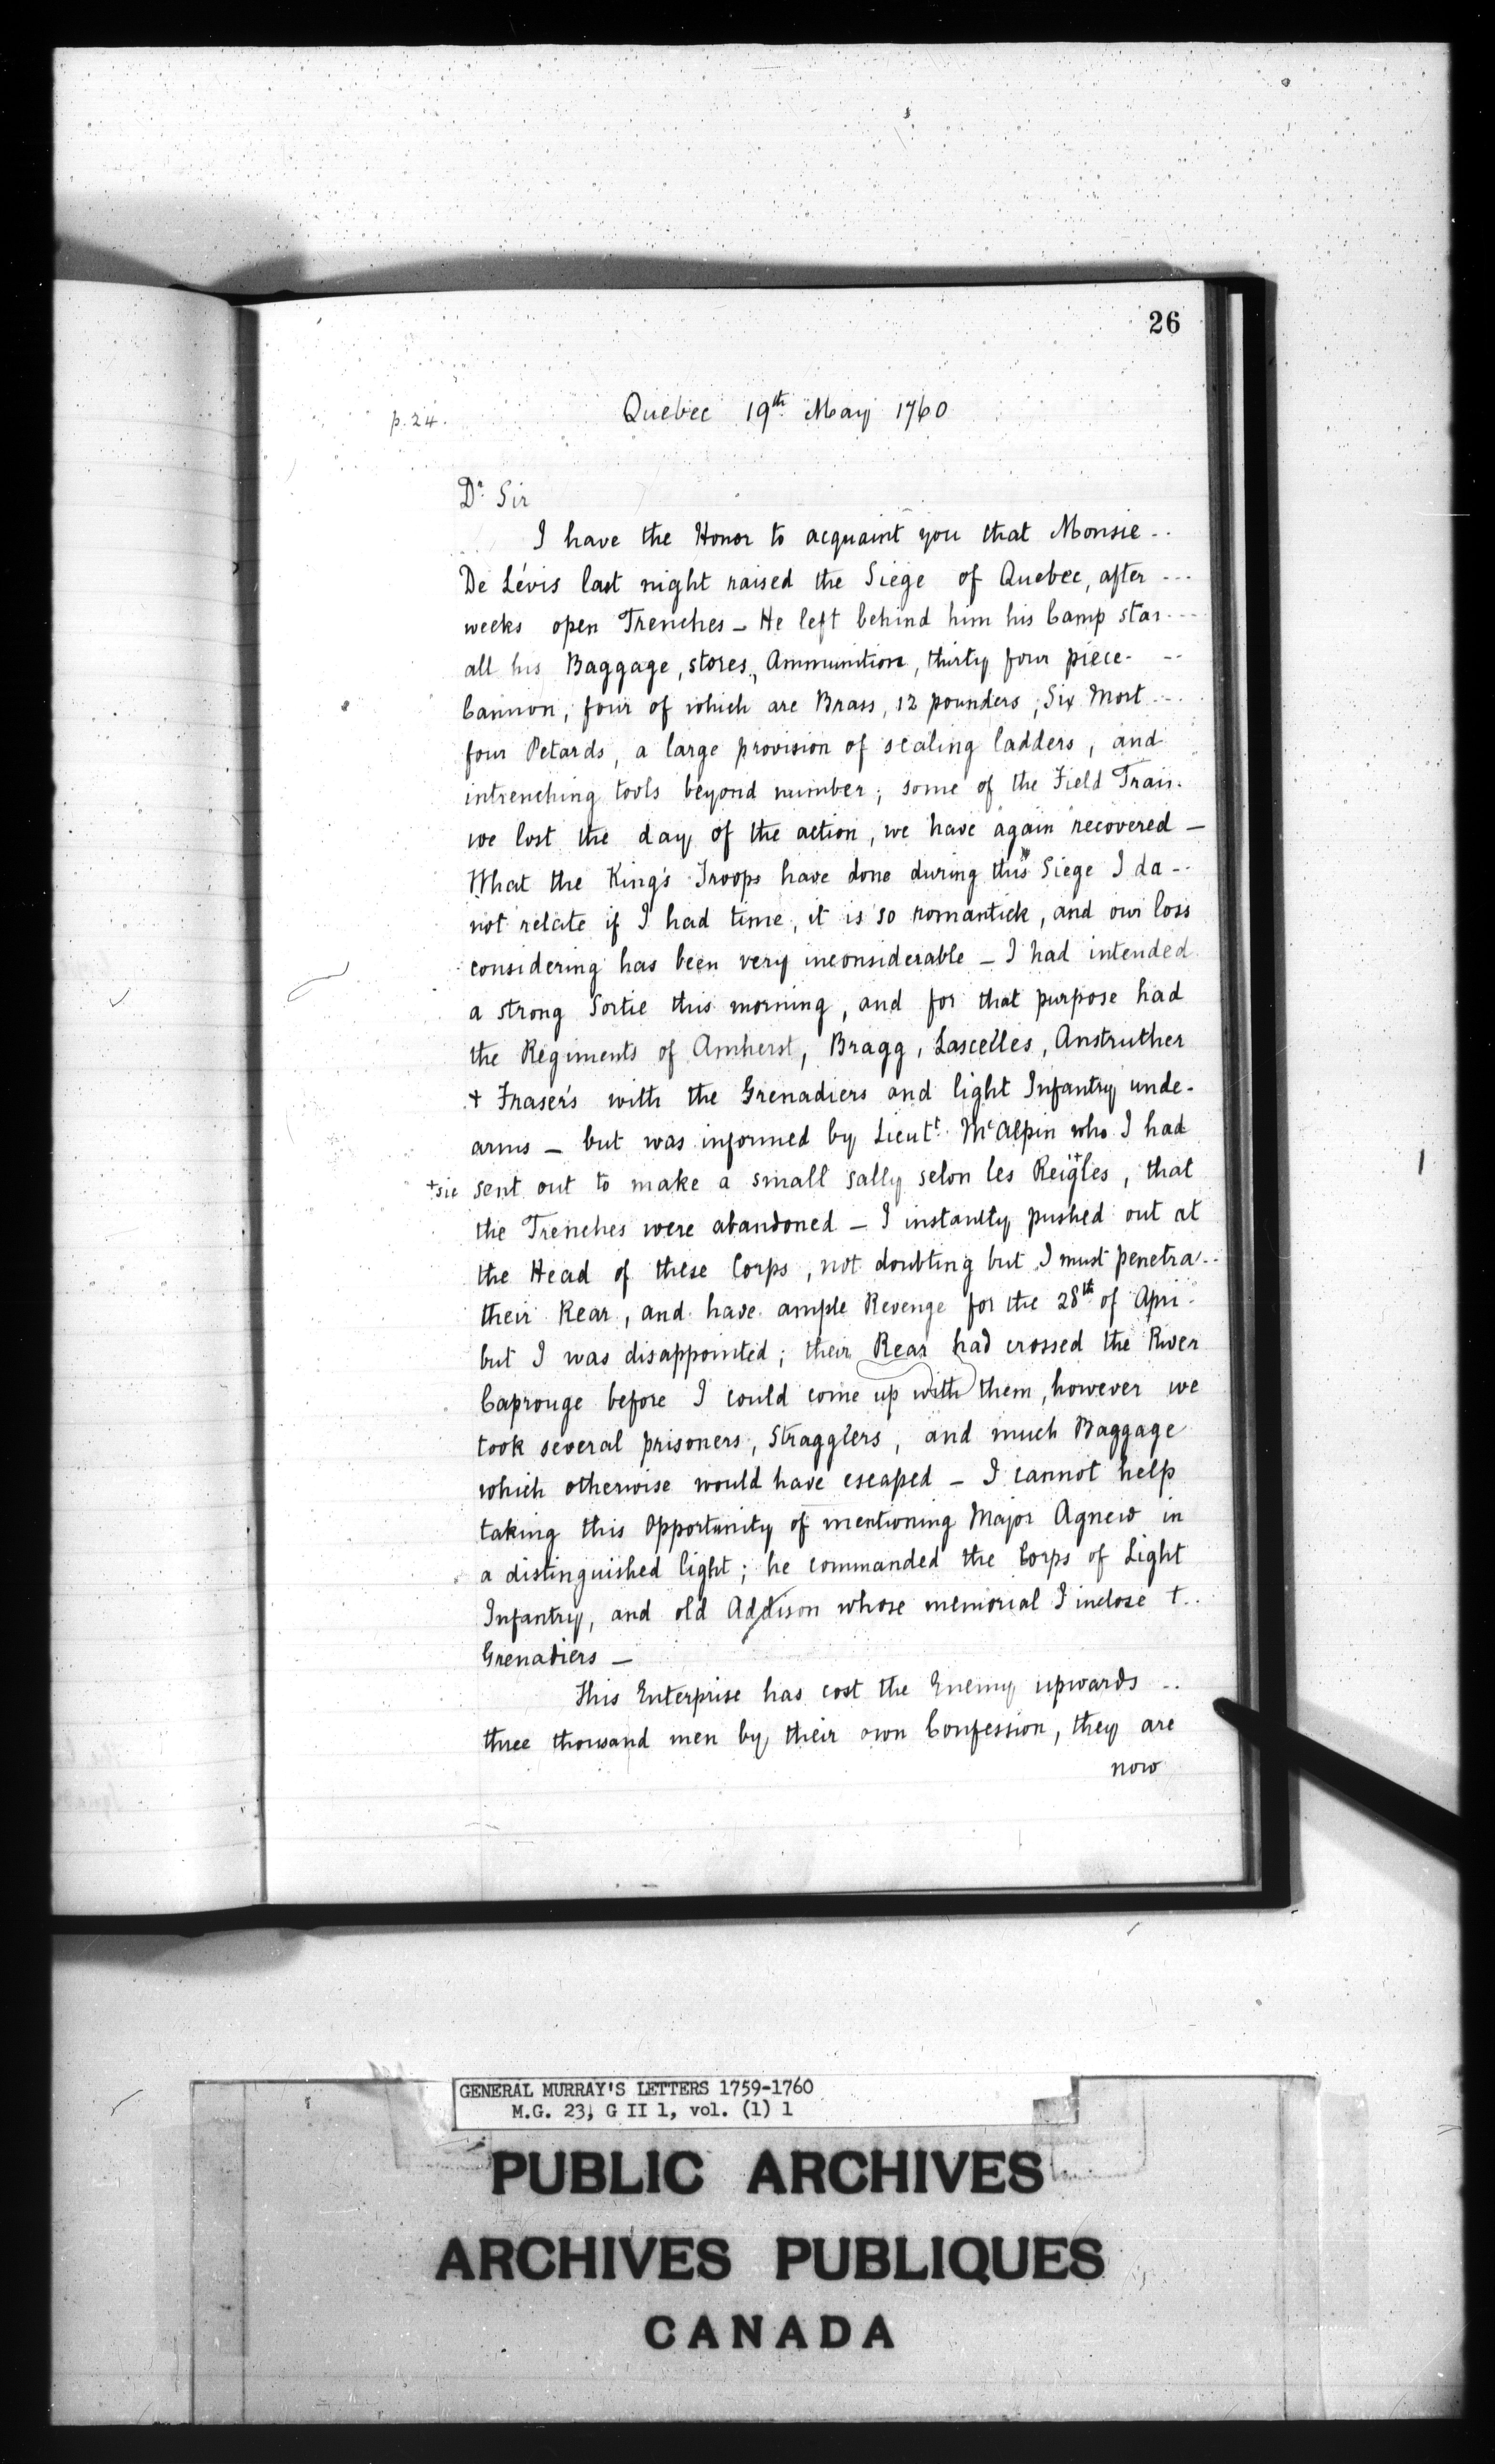 26
p. 24.
Quebec 19th May 1760
Dr Sir
I have the Honor to acquaint you that Monsie..
De Lévis last night raised the Siege of Quebec, after ...
weeks open Trenches _ He left behind him his Camp stan...
all his Baggage, stores, Ammunition, thirty four piece. ..
Cannon, four of which are Brass, 12 pounders, Six Mort...
four Petards, a large provision of scaling ladders, and
intrenching tools beyond number; some of the Field Train.
we lost the day of the action, we have again recovered _
What the King's Troops have done during this Siege I da..
not relate if I had time, it is so romantick, and our loss
considering has been very inconsiderable _ I had intended
a strong Sortie this morning, and for that purpose had
the Regiments of Amherst, Bragg, Lascelles, Anstruther
+ Fraser's with the Grenadiers and light Infantry unde.
arms _ but was informed by Lieutt McAlpin who I had
+sic sent out to make a small sally selon les Reigles+, that
the Trenches were abandoned _ I instantly pushed out at
the Head of these Corps, not doubting but I must penetra..
their Rear, and have ample Revenge for the 28th of Apri.
but I was disappointed; their Rear had crossed the River
Caprouge before I could come up with them, however we
took several prisoners, Stragglers, and much Baggage
which otherwise would have escaped _ I cannot help
taking this Opportunity of mentioning Major Agnew in
a distinguished light; he commanded the Corps of Light
Infantry, and old Addison whose memorial I inclose t..
Grenadiers _
This Enterprise has cost the Enemy upwards ..
three thousand men by their own Confession, they are
now
GENERAL MURRAY'S LETTERS 1759-1760
M.G. 23, G II 1, vol. (1) 1
PUBLIC ARCHIVES
ARCHIVES PUBLIQUES
CANADA